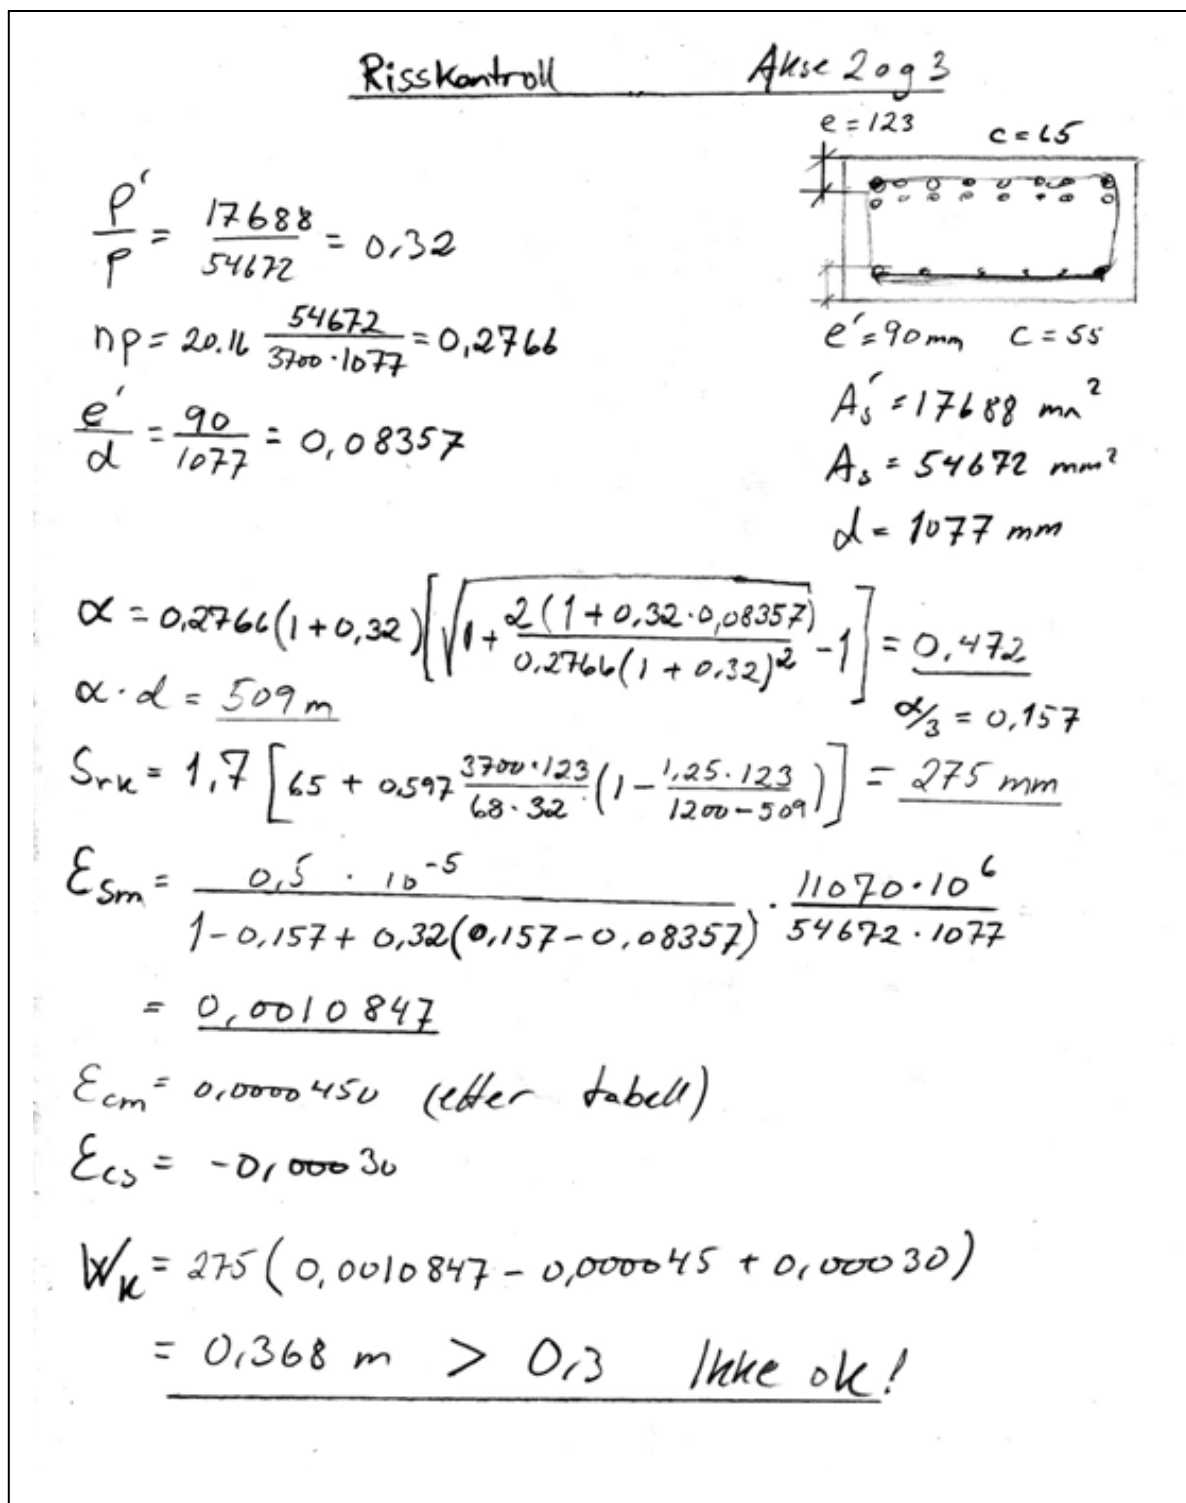 Risskontroll Akse 2 og 3
e = 123 c = 65
ρ'/ρ = 17688/54672 = 0,32
e' = 90 mm c = 55
nρ = 20.16 54672/(3700·1077) = 0,2766
As' = 17688 mm²
e'/d = 90/1077 = 0,08357
As = 54672 mm²
d = 1077 mm
α = 0,2766(1+0,32)[√(1+2(1+0,32·0,08357)/(0,2766(1+0,32)²))-1] = 0,472
α·d = 509 m
α/3 = 0,157
Srk = 1,7 [65 + 0,597 (3700·123)/(68·32) · (1 - (1,25·123)/(1200-509))] = 275 mm
εsm = (0,5 · 10⁻⁵)/(1-0,157+0,32(0,157-0,08357)) · (11070·10⁶)/(54672·1077)
= 0,0010847
εcm = 0,0000450 (etter tabell)
εcs = -0,00030
Wk = 275(0,0010847 - 0,000045 + 0,00030)
= 0,368 m > 0,3 Ikke ok!